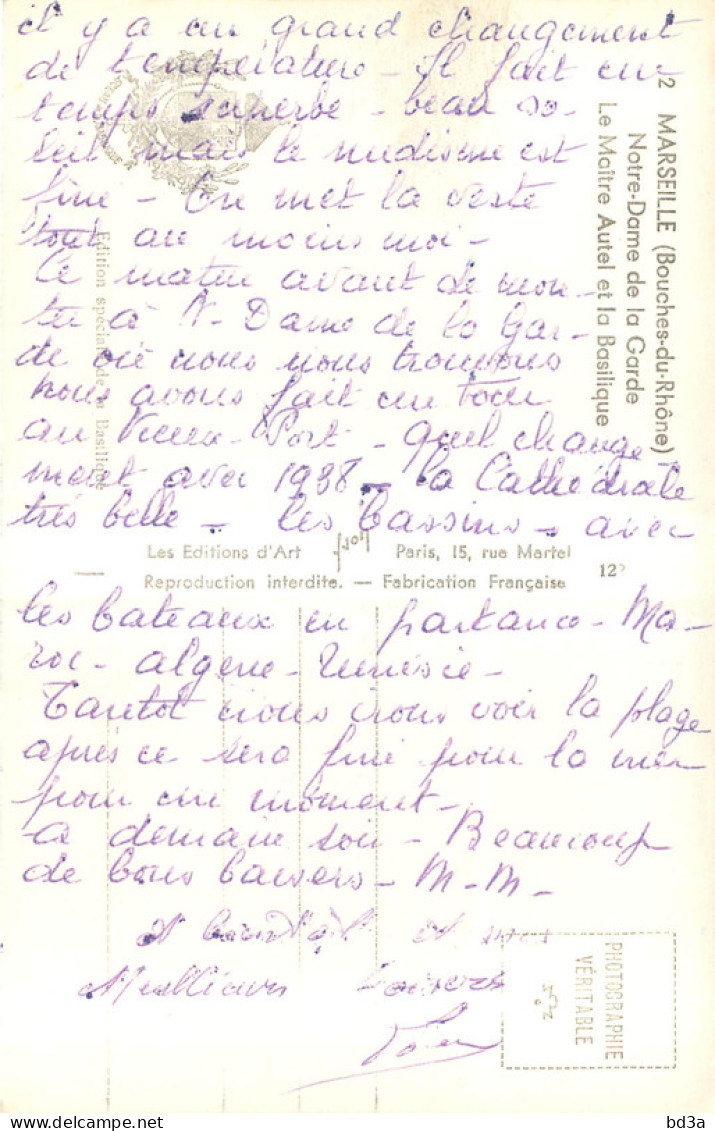 il y a un grand changement
de température - Il fait un
temps superbe - beau so-
leil mais le nudisme est
fini - On met la veste
tout au moins moi -
Ce matin avant de mon-
ter à N-Dame de la Gar-
de où nous nous trouvons
nous avons fait un tour
au Vieux-Port - quel change
ment avec 1938 - la Cathédrale
très belle - les bassins - avec
les bateaux en partance - Ma-
roc - algérie - Tunisie -
Tantôt nous irons voir la plage
après ce sera fini pour la mer
pour un moment -
a demain soir - Beaucoup
de bons baisers - M-M-
et bientôt et mes
Meilleurs baisers
2 MARSEILLE (Bouches-du-Rhône)
Notre-Dame de la Garde
Le Maître Autel et la Basilique
Edition spéciale de la Basilique
Les Editions d'Art yvon Paris, 15, rue Martel
Reproduction interdite. — Fabrication Française
12
PHOTOGRAPHIE
VÉRITABLE
bd3a